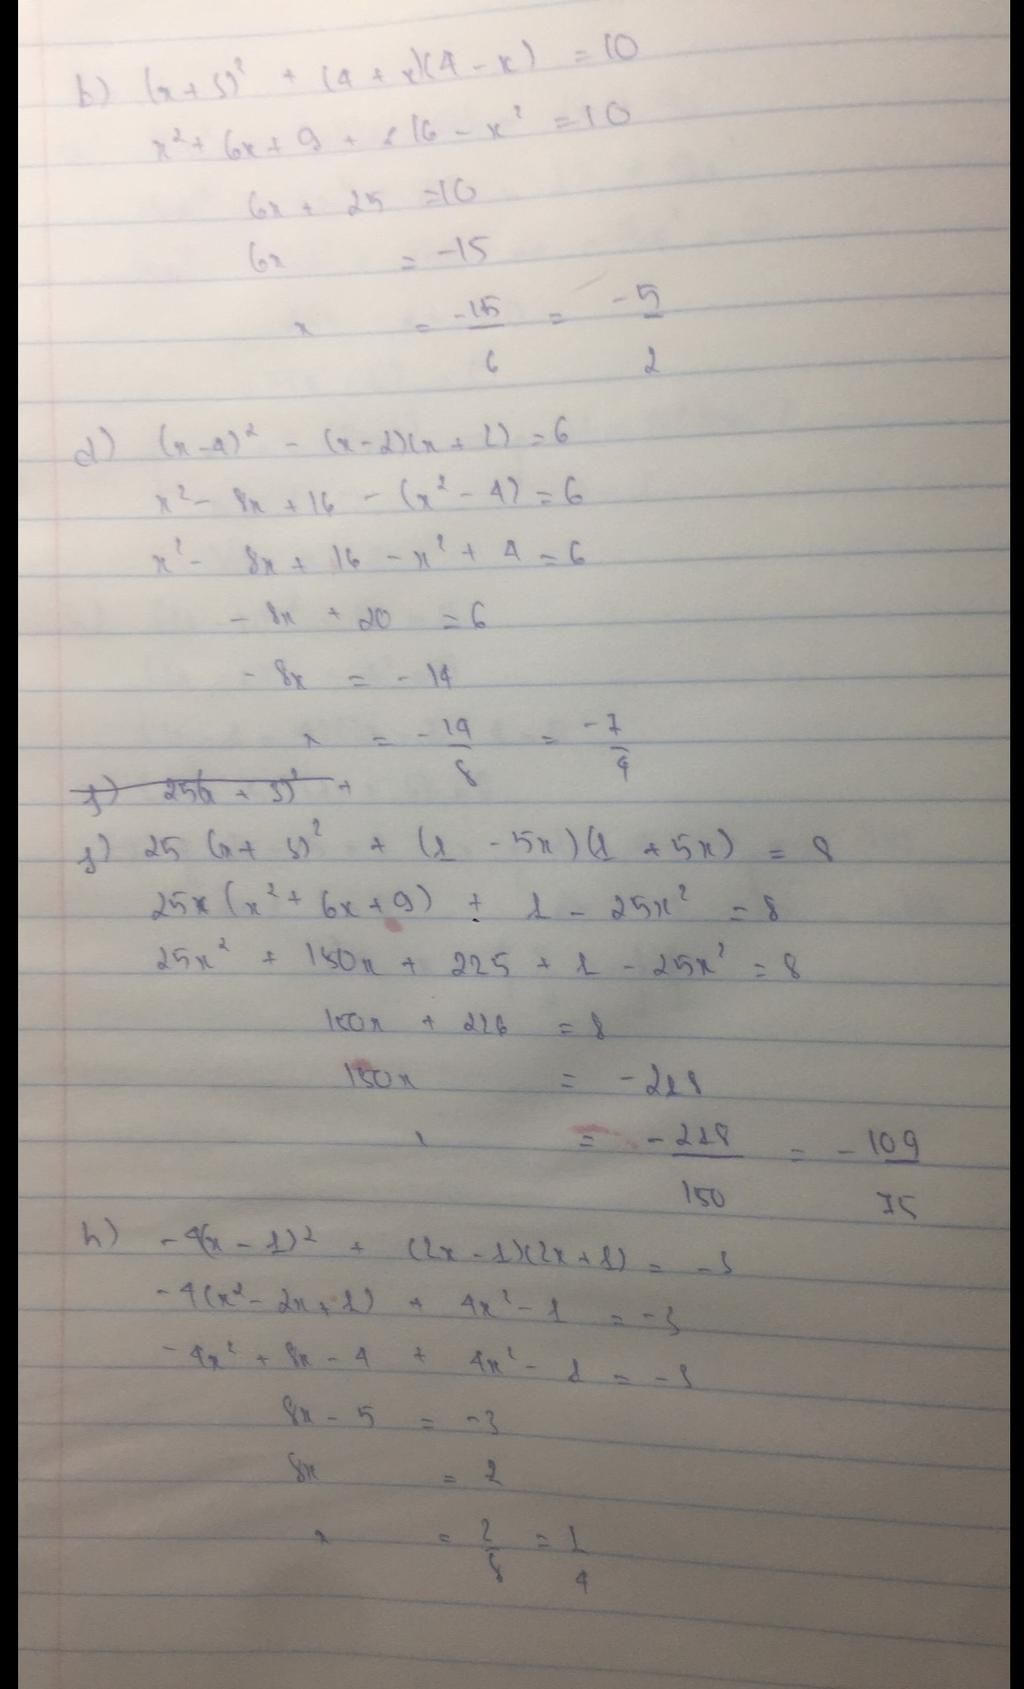 b) (x + 3)² + (4 + x)(4 - x) = 10
x² + 6x + 9 + 16 - x² = 10
6x + 25 = 10
6x = -15
x = -15/6 = -5/2
d) (x - 4)² - (x - 2)(x + 2) = 6
x² - 8x + 16 - (x² - 4) = 6
x² - 8x + 16 - x² + 4 = 6
- 8x + 20 = 6
- 8x = - 14
x = - 14/8 = -7/4
f) 25(x + 3)² +
f) 25 (x + 3)² + (1 - 5x)(1 + 5x) = 8
25x (x² + 6x + 9) + 1 - 25x² = 8
25x² + 150x + 225 + 1 - 25x² = 8
150x + 226 = 8
150x = - 218
= - 218/150 = - 109/75
h) - 4(x - 1)² + (2x - 1)(2x + 1) = - 3
- 4(x² - 2x + 1) + 4x² - 1 = - 3
- 4x² + 8x - 4 + 4x² - 1 = - 3
8x - 5 = - 3
8x = 2
x = 2/8 = 1/4